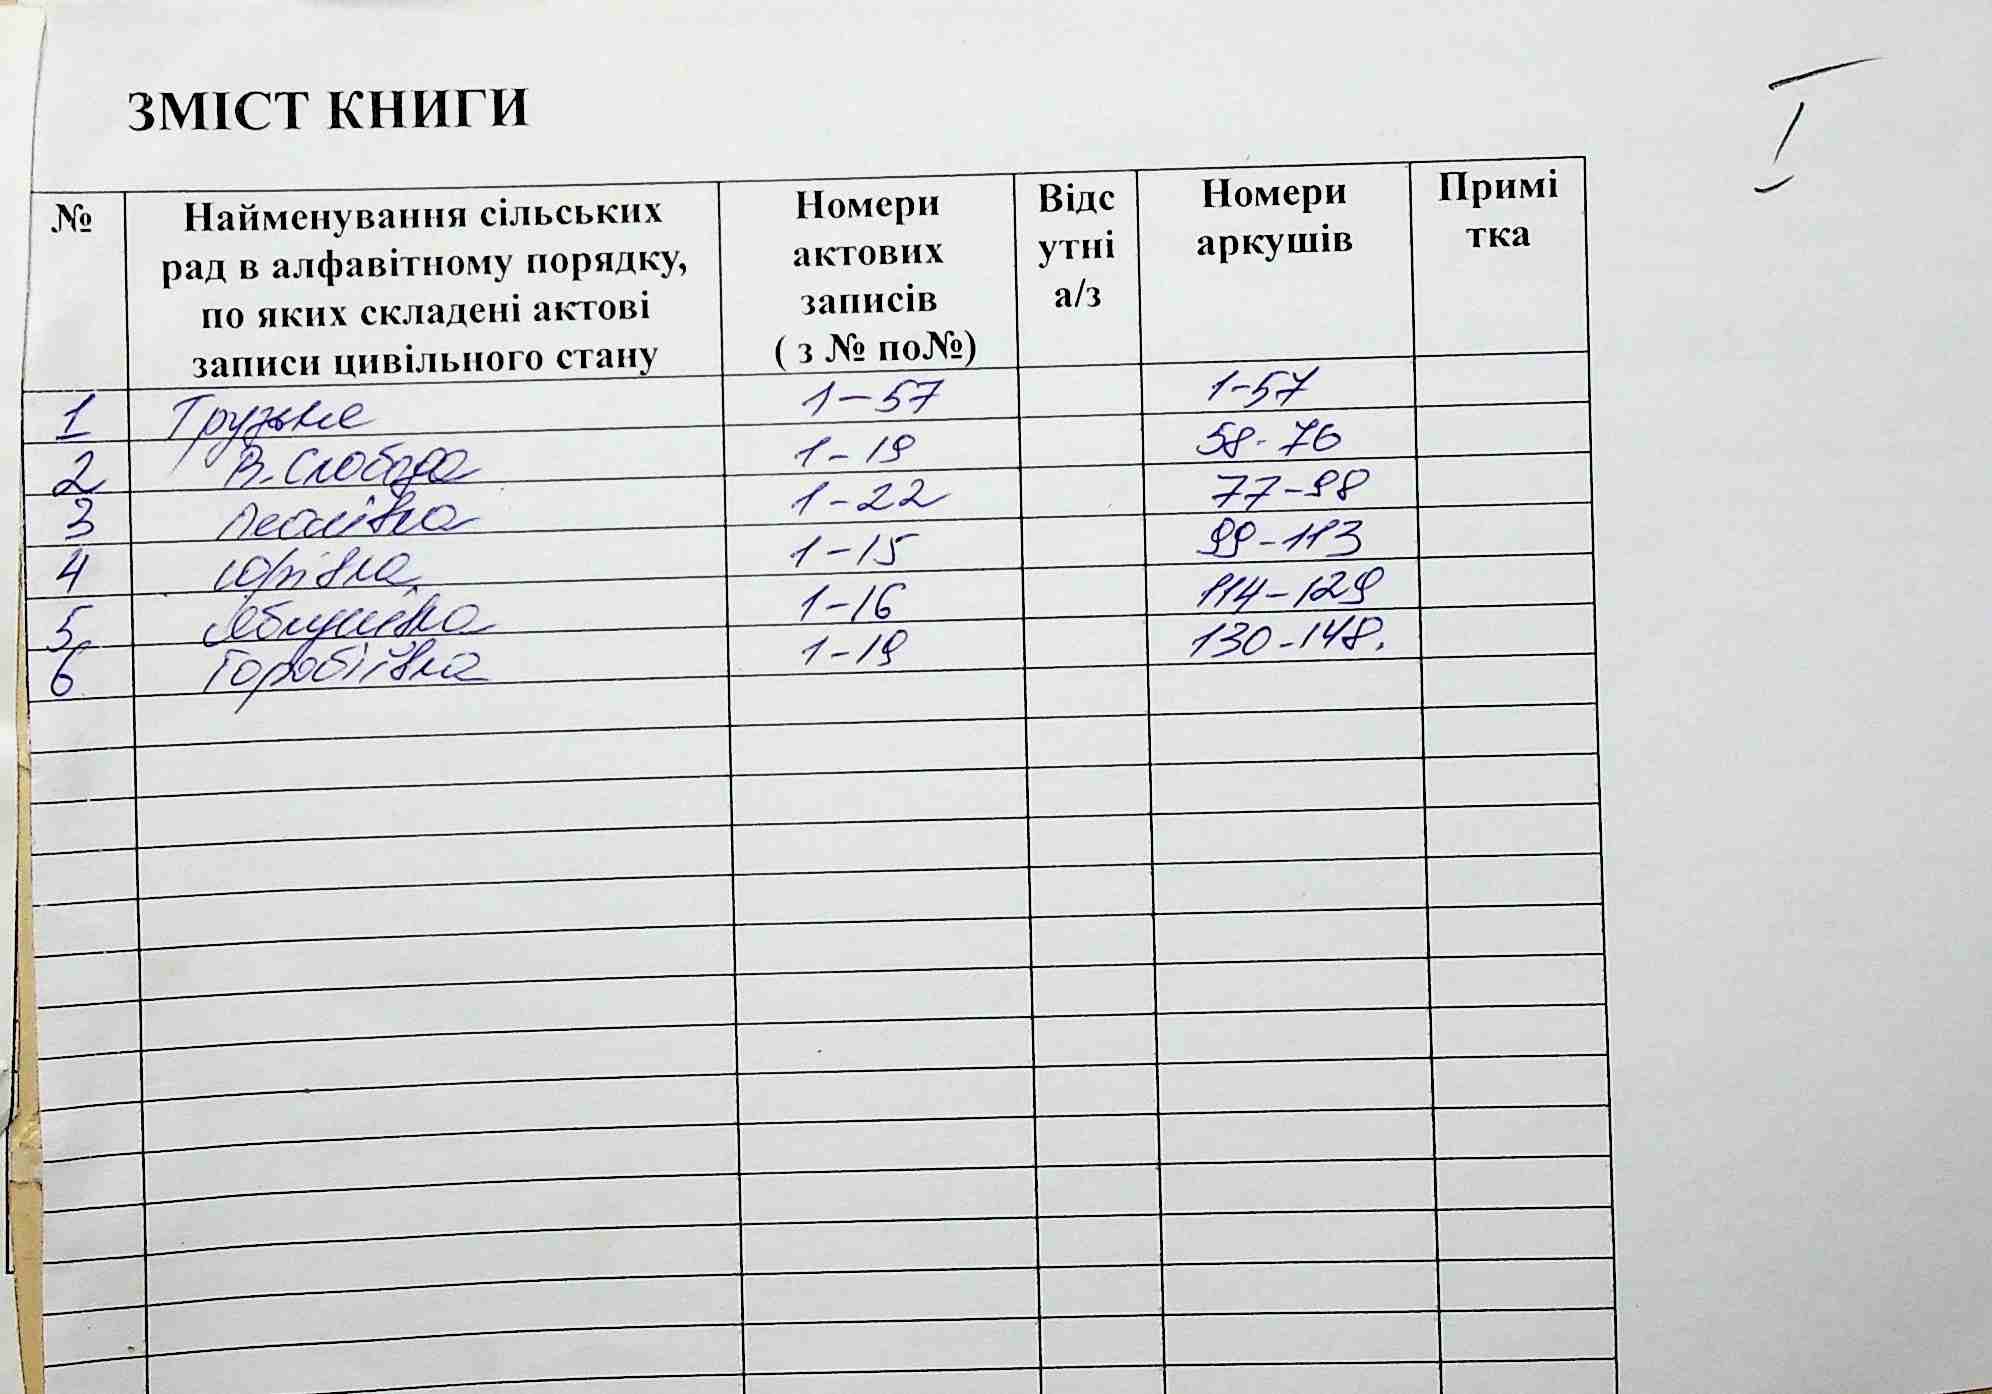 ЗМІСТ КНИГИ
I
№ Найменування сільських рад в алфавітному порядку, по яких складені актові записи цивільного стану Номери актових записів ( з № по№) Відс утні а/з Номери аркушів Примі тка
1 Грузьке 1-57 1-57
2 В. Слобода 1-19 58-76
3 1-22 77-98
4 Юрівка 1-15 99-113
5 Яблунівка 1-16 114-129
6 Горобіївка 1-19 130-148.